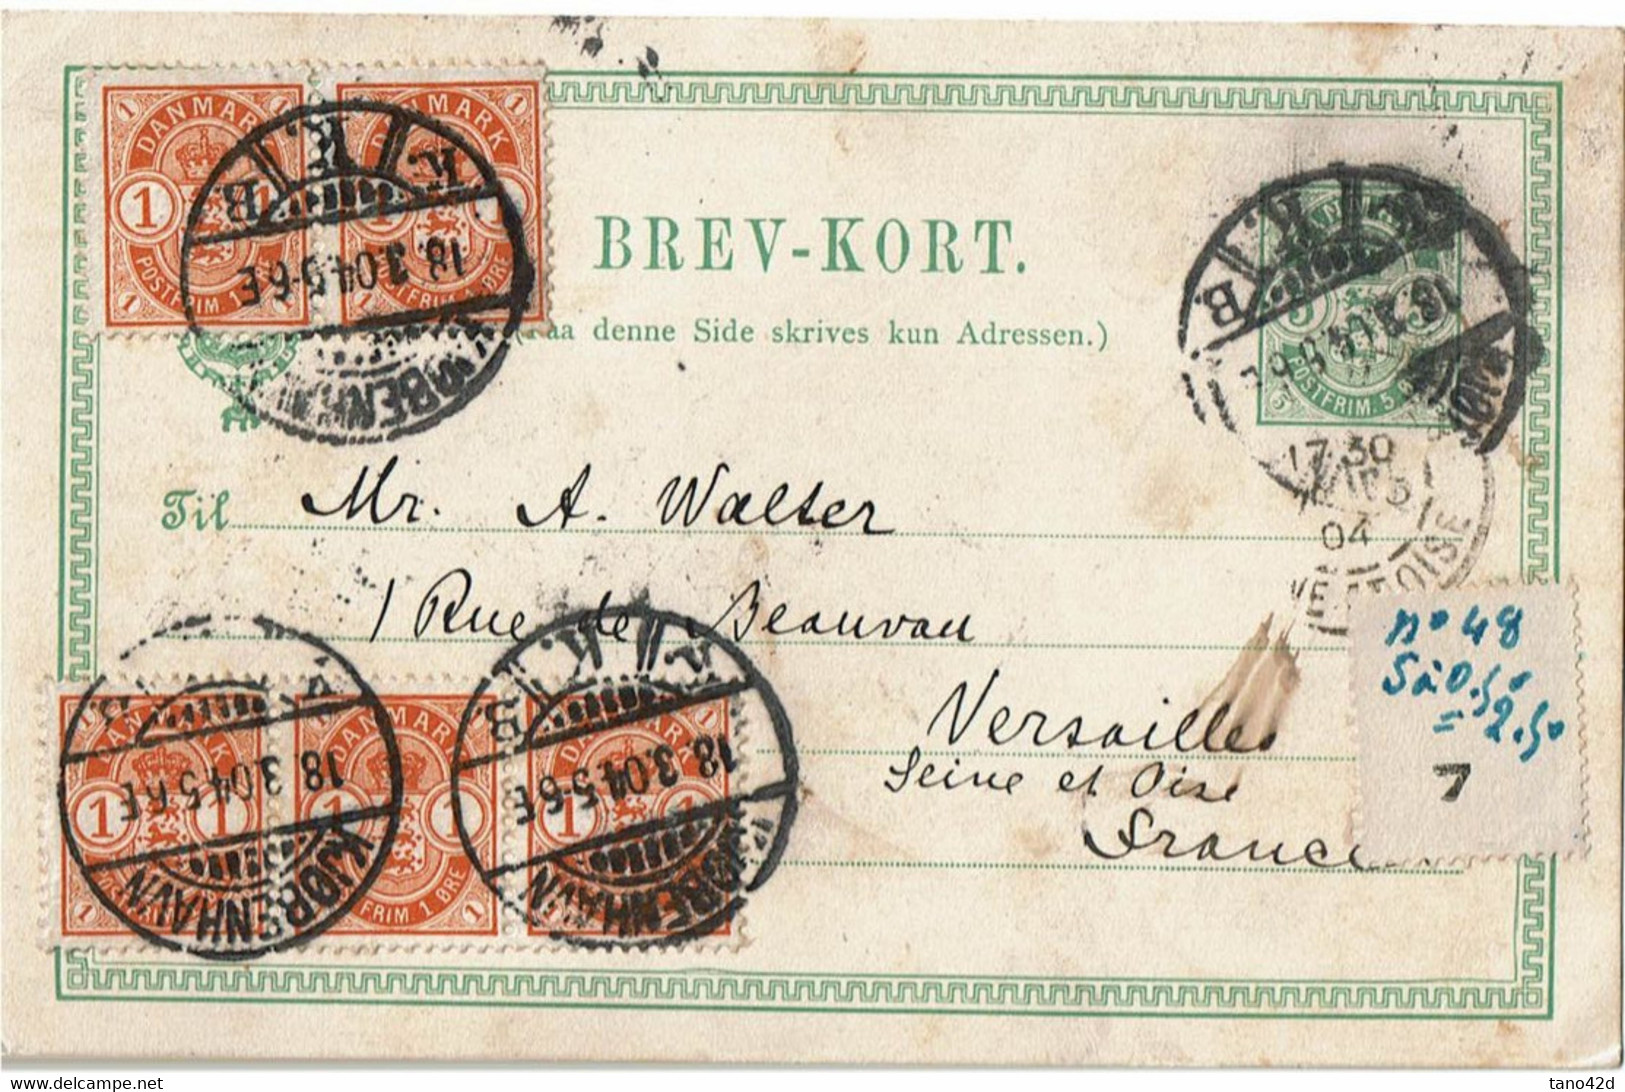 DANMARK
1 1
POSTFRIM. 1 ØRE
DANMARK
1 1
POSTFRIM. 1 ØRE
K. K. B
18.3.04.5-6E
KJØBENHAVN
BREV-KORT.
(Paa denne Side skrives kun Adressen.)
K. K. B
18.3.04.5-6E
5 5
POSTFRIM. 5 ØRE
Til Mr. A. Walter
1 Rue de Beauvau
Versailles
Seine et Oise
France
17 30
04
ET OISE
no 48
5 à 0.50
= 2.50
7
DANMARK
1 1
18.3.04.5-6E
KJØBENHAVN
DANMARK
1 1
POSTFRIM 1 ØRE
K. K. B
DANMARK
1 1
18.3.04.5-6E
KJØBENHAVN
delcampe.net
tano42d